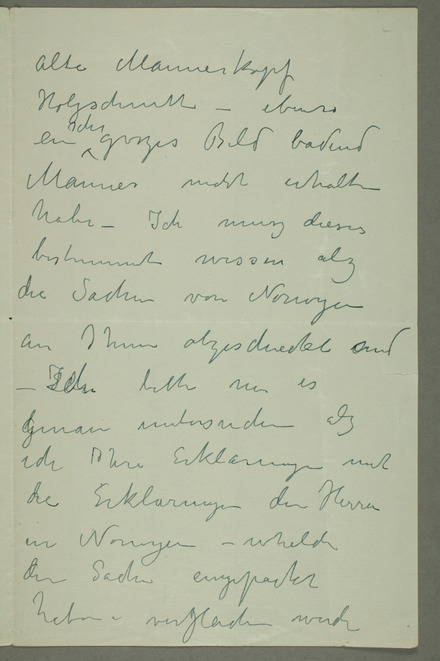 alte Mannerkopf
Holzschnitt – ebenso
ein sehr groszes Bild badend
Manner nicht erhalten
habe – Ich musz dieses
bestimmt wissen alz
die Sachen von Norwegen
an Ihnen abgeschickt sind
– Ich bitte nun es
genau untersuchen alz
ich Ihre Erklarungen mit
die Erklarungen der Herren
in Norwegen – whelche
die Sachen eingepackt
haben – vergleichen werde